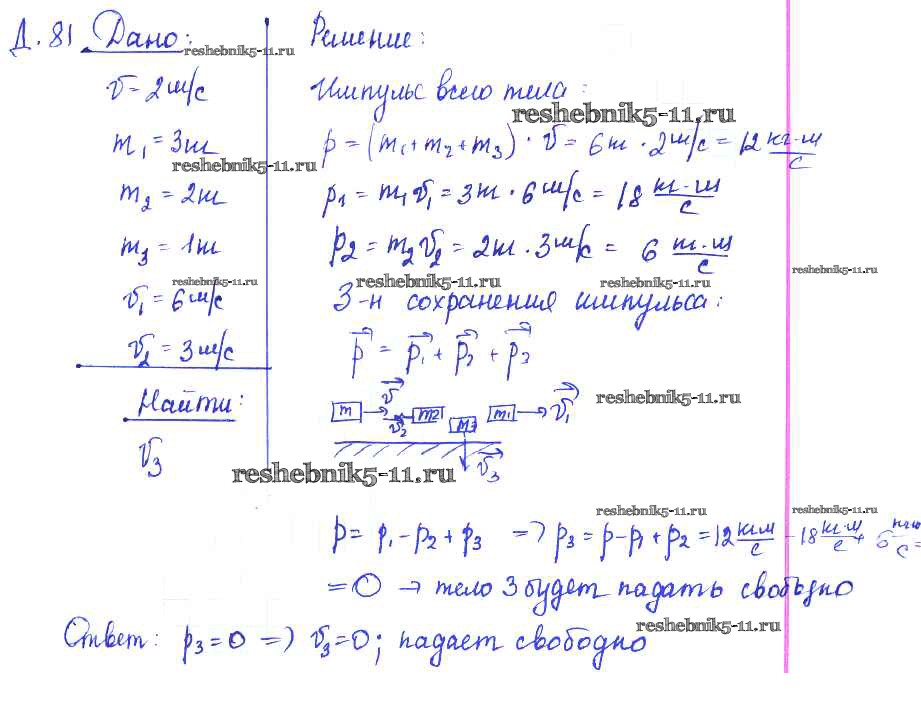 Д. 81 Дано:
reshebnik5-11.ru
v = 2 м/с
m₁ = 3 кг
reshebnik5-11.ru
m₂ = 2 кг
m₃ = 1 кг
reshebnik5-11.ru
v₁ = 6 м/с
v₂ = 3 м/с
Найти:
v₃
Решение:
Импульс всего тела:
reshebnik5-11.ru
p = (m₁ + m₂ + m₃) · v = 6 кг · 2 м/с = 12 кг·м/с
p₁ = m₁v₁ = 3 кг · 6 м/с = 18 кг·м/с
p₂ = m₂v₂ = 2 кг · 3 м/с = 6 кг·м/с
reshebnik5-11.ru reshebnik5-11.ru reshebnik5-11.ru
З-н сохранения импульса:
p⃗ = p⃗₁ + p⃗₂ + p⃗₃
reshebnik5-11.ru
m v⃗ v⃗₂ m₂ m₃ m₁ v⃗₁
v⃗₃
reshebnik5-11.ru
reshebnik5-11.ru reshebnik5-11.ru
p = p₁ - p₂ + p₃ => p₃ = p - p₁ + p₂ = 12 кг·м/с - 18 кг·м/с + 6 кг·м/с =
= 0 → тело 3 будет падать свободно
reshebnik5-11.ru
Ответ: p₃ = 0 => v₃ = 0; падает свободно